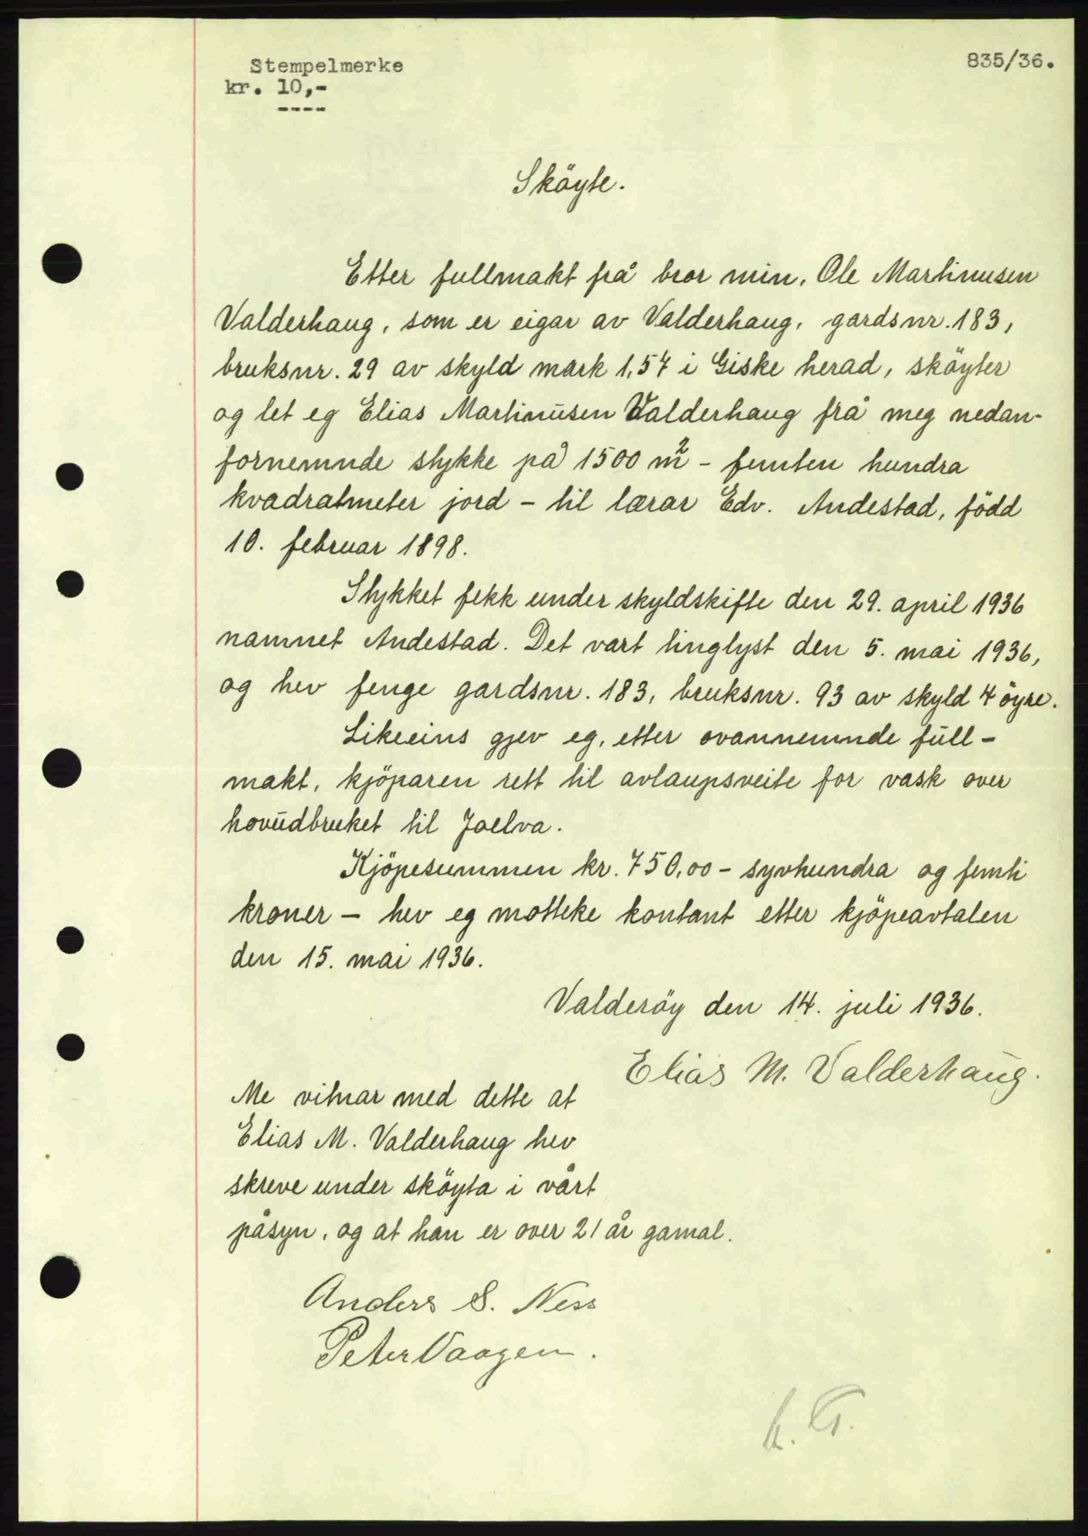 Stempelmerke
kr. 10,-
----
835/36.
Sköyte.
Etter fullmakt frå bror min, Ole Martinusen
Valderhaug, som er eigar av Valderhaug, gardsnr. 183,
bruksnr. 29 av skyld mark 1,57 i Giske herad, sköyter
og let eg Elias Martinusen Valderhaug frå meg nedan-
fornemnde stykke på 1500 m² - femten hundra
kvadratmeter jord - til lærar Edv. Andestad, född
10. februar 1898.
Stykket fekk under skyldskifte den 29. april 1936
namnet Andestad. Det vart tinglyst den 5. mai 1936,
og hev fenge gardsnr. 183, bruksnr. 93 av skyld 4 öyre.
Likeeins gjev eg, etter ovannemnde full-
makt, kjöparen rett til avlaupsveite for vask over
hovudbruket til Joelva.
Kjöpesummen kr. 750,00 - syvhundra og femti
kroner - hev eg motteke kontant etter kjöpeavtalen
den 15. mai 1936.
Valderöy den 14. juli 1936.
Elias M. Valderhaug.
Me vitnar med dette at
Elias M. Valderhaug hev
skreve under sköyta i vårt
påsyn, og at han er over 21 år gamal.
Anders S. Ness
Peter Vaagen.